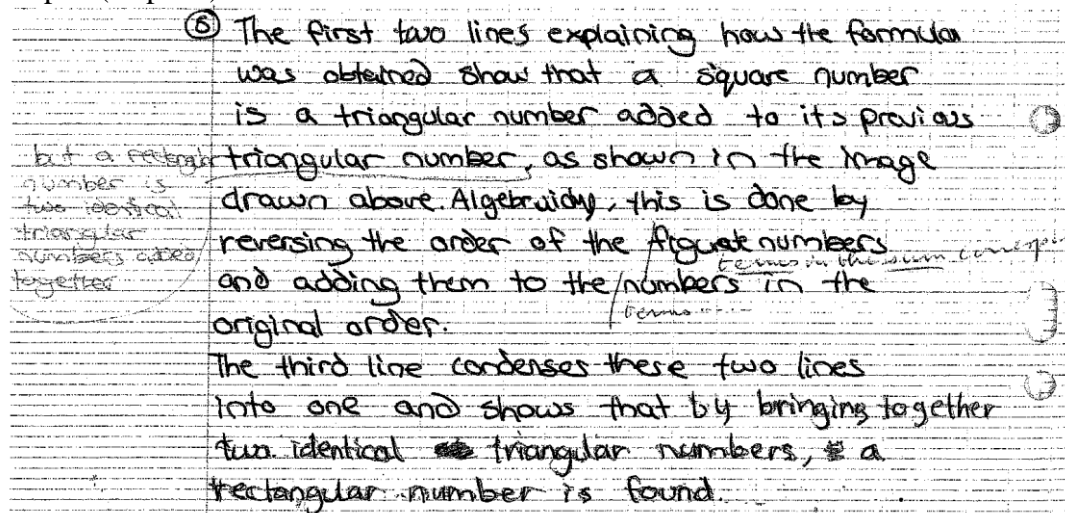 ⑤ The first two lines explaining how the formula
was obtained show that a square number
is a triangular number added to its previous
triangular number, as shown in the image
drawn above. Algebraicly, this is done by
reversing the order of the numbers
terms in the sum
and adding them to the numbers in the
terms
original order.
The third line condenses these two lines
into one and shows that by bringing together
two identical triangular numbers, a
rectangular number is found.
but a rectangular
number is
two identical
triangular
numbers added
together